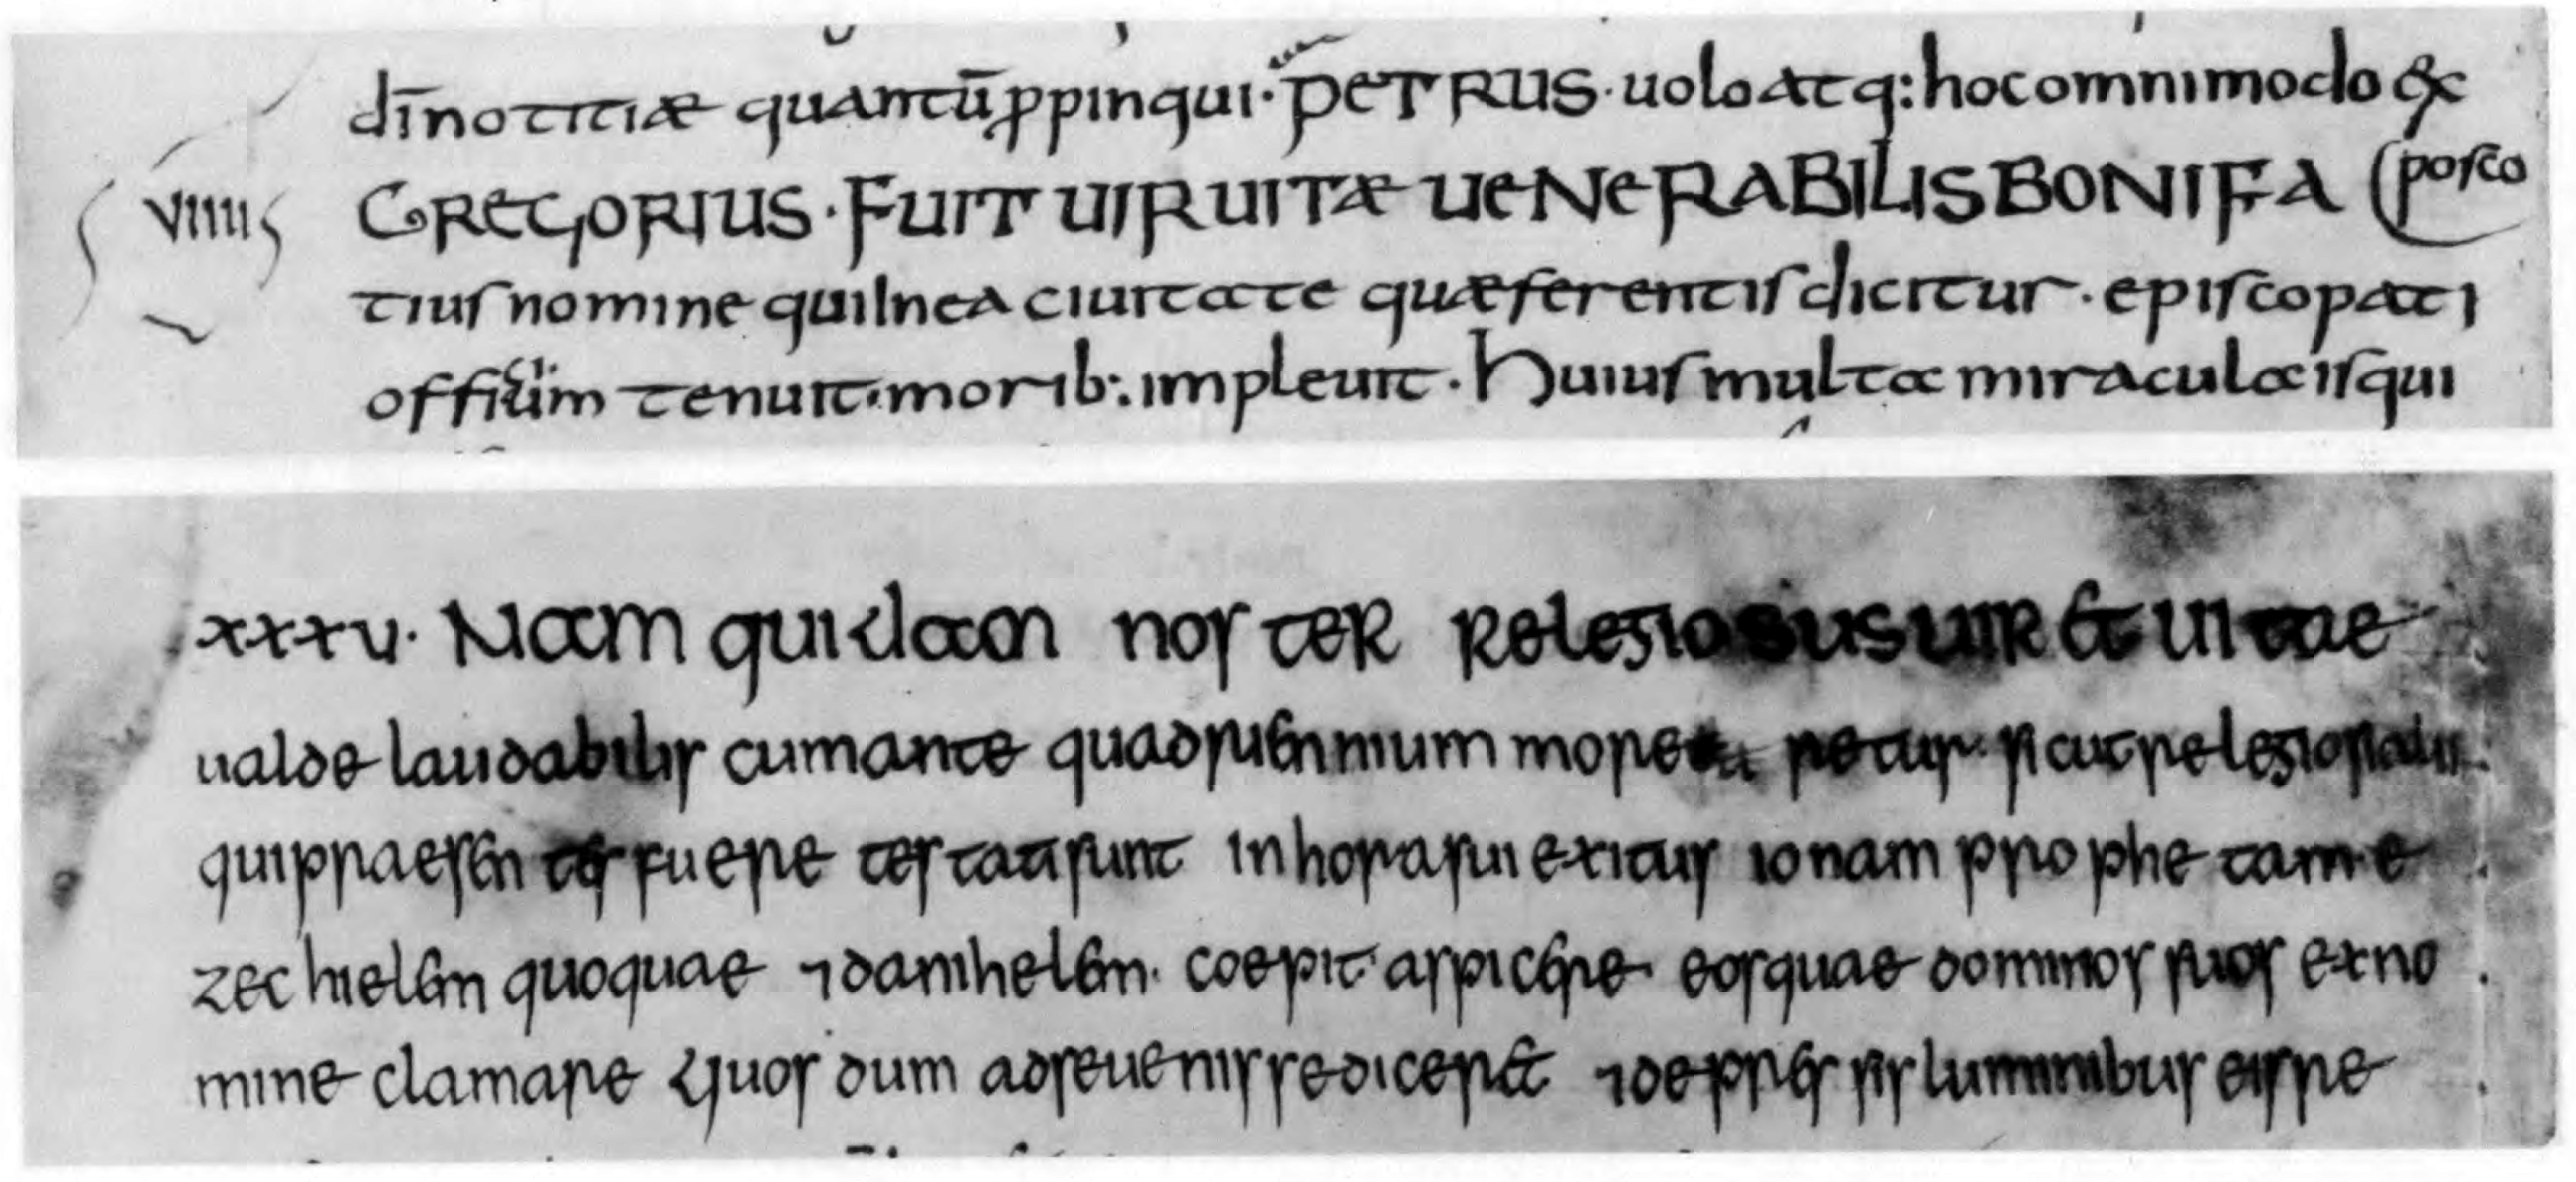 dīnotitiæ quantū ppinqui · PETRUS · uolo atq: hoc omnimodo &
VIIII GREGORIUS · FUIT UIR UITÆ UENERABILIS BONIFA (posco
tius nomine qui In ea ciuitate quæ ferentis dicitur · episcopati
offici̇um tenuit · morib: impleuit · Huius multa miracula is qui
xxxu · Nam quidam noster relegiosus uir et uitae
ualde laudabilis cum ante quadriennium moreretur · sicut relegiosi alii
qui praesentes fuere testati sunt in hora sui exitus ionam prophetam · e
zechielem quoquae ⁊ danihelem · coepit aspicere · eosquae dominos suos exno
mine clamare Quos dum ad se uenisse diceret ⁊ depressis luminibus eis re